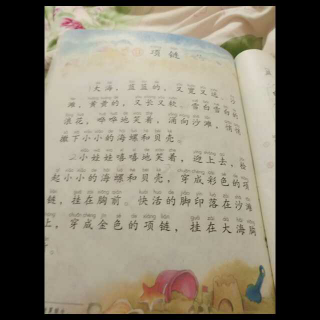 项链
大海，蓝蓝的，又宽又远。沙
滩，黄黄的，又长又软。雪白雪白的
浪花，哗哗地笑着，涌向沙滩，悄悄
撒下小小的海螺和贝壳。
小娃娃嘻嘻地笑着，迎上去，捡
起小小的海螺和贝壳，穿成彩色的项
链，挂在胸前。快活的脚印落在沙滩
上，穿成金色的项链，挂在大海胸